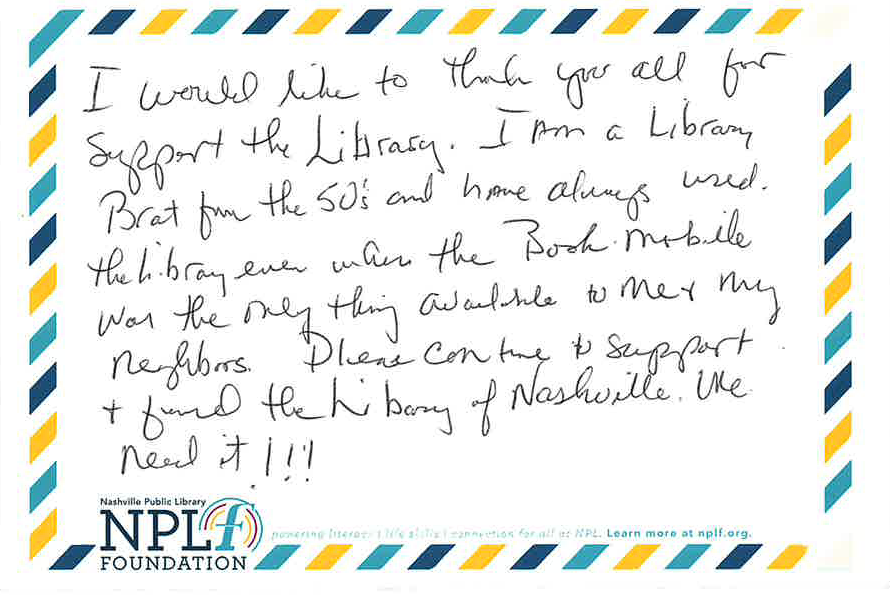 I would like to thank you all for
Support the Library. I Am a Library
Brat from the 50's and have always used.
the library even when the Book mobile
was the only thing available to me + my
neighbors. Please continue to support
+ fund the Library of Nashville. We
need it!!!
Nashville Public Library
NPLf
FOUNDATION
powering literacy | life skills | connection for all at NPL. Learn more at nplf.org.